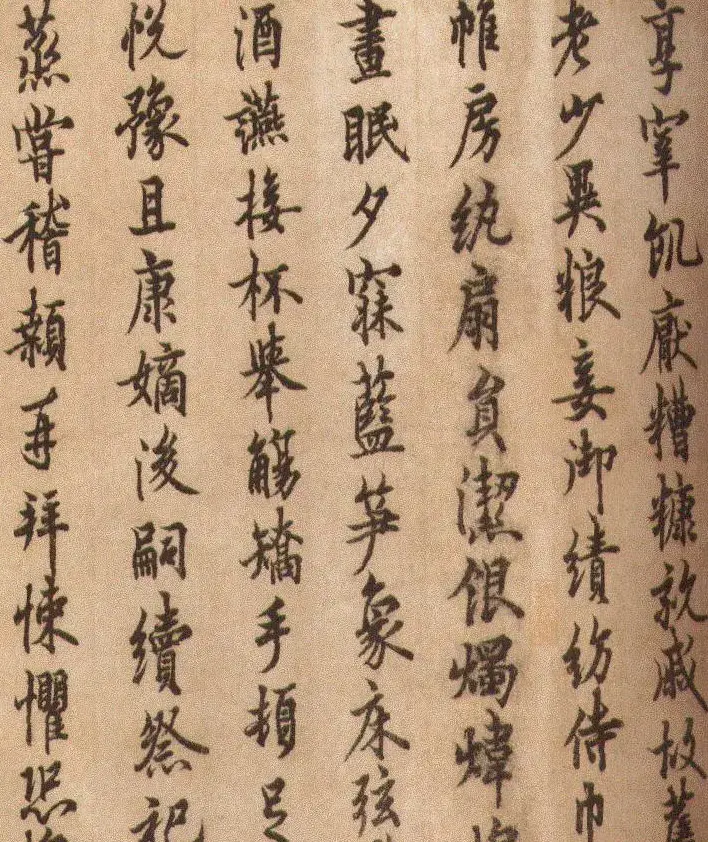 享宰飢厭糟糠親戚故舊
老少異粮妾御績紡侍巾
帷房紈扇員潔銀燭煒煌
晝眠夕寐藍笋象床弦
酒讌接杯舉觴矯手頓足
悅豫且康嫡後嗣續祭祀
蒸嘗稽顙再拜悚懼恐惶